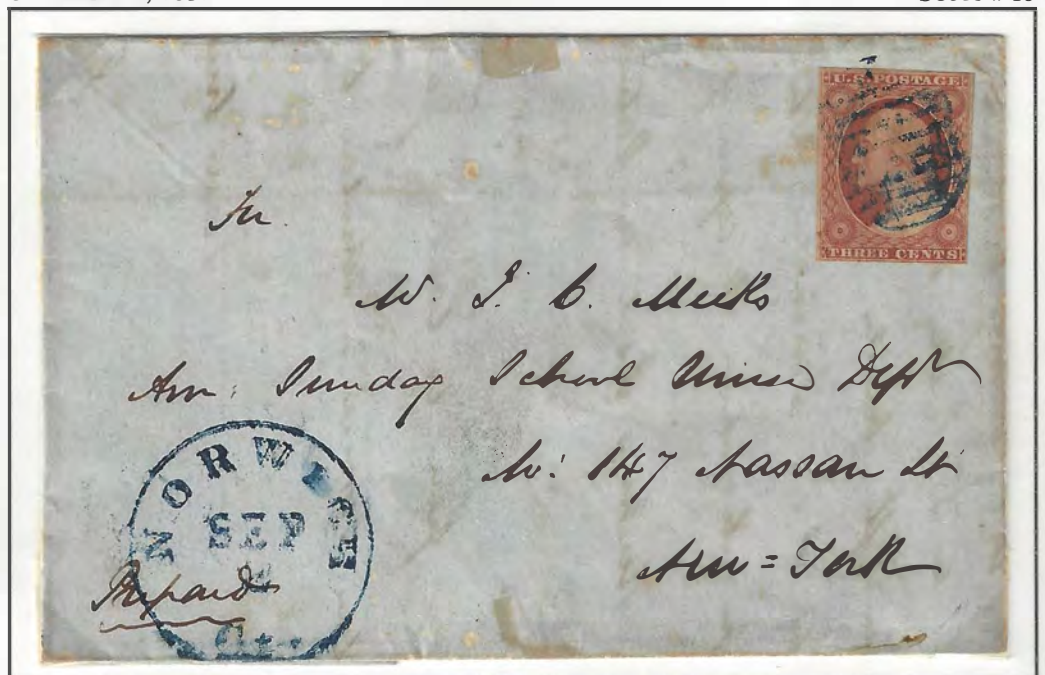 U.S. POSTAGE
THREE CENTS
W. J. C. Meeks
Am: Sunday School Union Dept
No: 147 Nassau St
New=York
NORWICH
SEP
Ct.
Prepaid